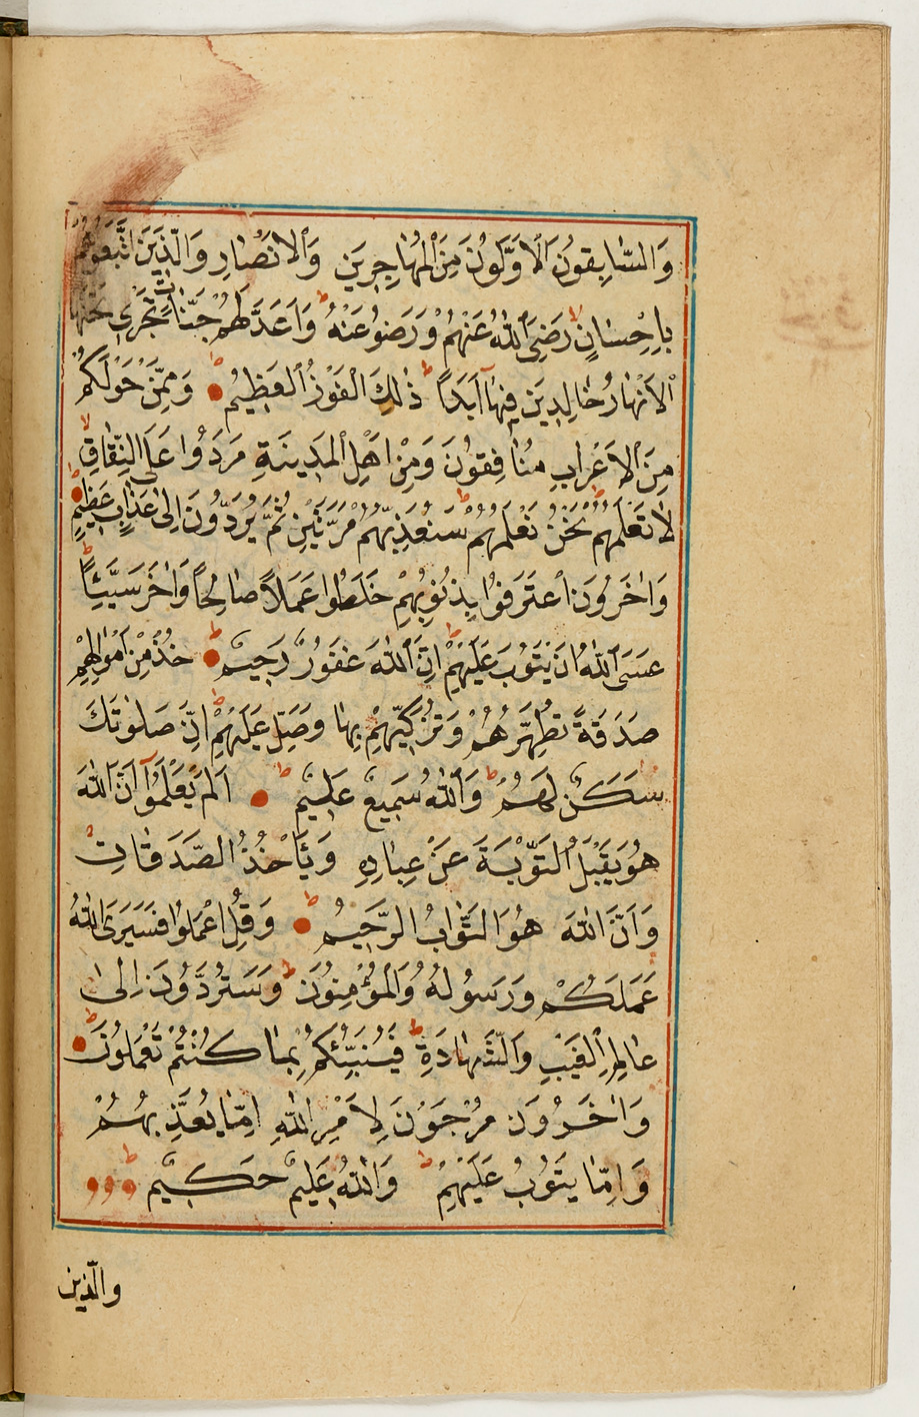 وَالسَّابِقُونَ الْاَوَّلُونَ مِنَ الْمُهَاجِرِينَ وَالْاَنْصَارِ وَالَّذِينَ اتَّبَعُوهُمْ
بِاِحْسَانٍ رَضِيَ اللّٰهُ عَنْهُمْ وَرَضُوا عَنْهُ وَاَعَدَّ لَهُمْ جَنَّاتٍ تَجْرِي تَحْتَهَا
الْاَنْهَارُ خَالِدِينَ فِيهَا اَبَدًا ذٰلِكَ الْفَوْزُ الْعَظِيمُ وَمِمَّنْ حَوْلَكُمْ
مِنَ الْاَعْرَابِ مُنَافِقُونَ وَمِنْ اَهْلِ الْمَدِينَةِ مَرَدُوا عَلَى النِّفَاقِ
لَا تَعْلَمُهُمْ نَحْنُ نَعْلَمُهُمْ سَنُعَذِّبُهُمْ مَرَّتَيْنِ ثُمَّ يُرَدُّونَ اِلٰى عَذَابٍ عَظِيمٍ
وَاٰخَرُونَ اعْتَرَفُوا بِذُنُوبِهِمْ خَلَطُوا عَمَلًا صَالِحًا وَاٰخَرَ سَيِّئًا
عَسَى اللّٰهُ اَنْ يَتُوبَ عَلَيْهِمْ اِنَّ اللّٰهَ غَفُورٌ رَحِيمٌ خُذْ مِنْ اَمْوَالِهِمْ
صَدَقَةً تُطَهِّرُهُمْ وَتُزَكِّيهِمْ بِهَا وَصَلِّ عَلَيْهِمْ اِنَّ صَلٰوتَكَ
سَكَنٌ لَهُمْ وَاللّٰهُ سَمِيعٌ عَلِيمٌ اَلَمْ يَعْلَمُوا اَنَّ اللّٰهَ
هُوَ يَقْبَلُ التَّوْبَةَ عَنْ عِبَادِهِ وَيَأْخُذُ الصَّدَقَاتِ
وَاَنَّ اللّٰهَ هُوَ التَّوَّابُ الرَّحِيمُ وَقُلِ اعْمَلُوا فَسَيَرَى اللّٰهُ
عَمَلَكُمْ وَرَسُولُهُ وَالْمُؤْمِنُونَ وَسَتُرَدُّونَ اِلٰى
عَالِمِ الْغَيْبِ وَالشَّهَادَةِ فَيُنَبِّئُكُمْ بِمَا كُنْتُمْ تَعْمَلُونَ
وَاٰخَرُونَ مُرْجَوْنَ لِاَمْرِ اللّٰهِ اِمَّا يُعَذِّبُهُمْ
وَاِمَّا يَتُوبُ عَلَيْهِمْ وَاللّٰهُ عَلِيمٌ حَكِيمٌ
والّذين